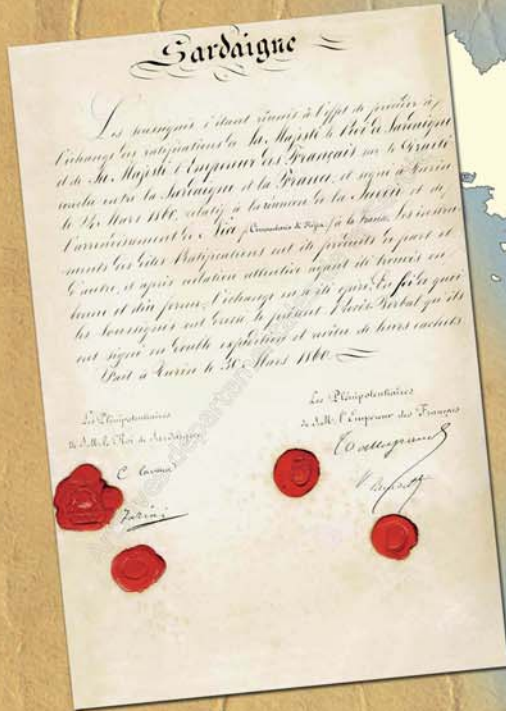 Sardaigne
Les soussignés s'étant réunis à l'effet de procéder à
l'échange des ratifications de Sa Majesté le Roi de Sardaigne
et de Sa Majesté l'Empereur des Français sur le Traité
conclu entre la Sardaigne et la France, et signé à Turin
le 24 Mars 1860, relatif à la réunion de la Savoie et de
l'arrondissement de Nice (Circondario di Nizza) à la France, les instru-
ments des dites Ratifications ont été produits de part et
d'autre, et après collation attentive ayant été trouvés en
bonne et due forme, l'échange en a été opéré. En foi de quoi
les Soussignés ont dressé le présent Procès-Verbal qu'ils
ont signé en double expédition et revêtu de leurs cachets
Fait à Turin le 30 Mars 1860.
Les Plénipotentiaires
de S.M. le Roi de Sardaigne
C. Cavour
Farini
Les Plénipotentiaires
de S.M. l'Empereur des Français
Talleyrand
V. Benedetti